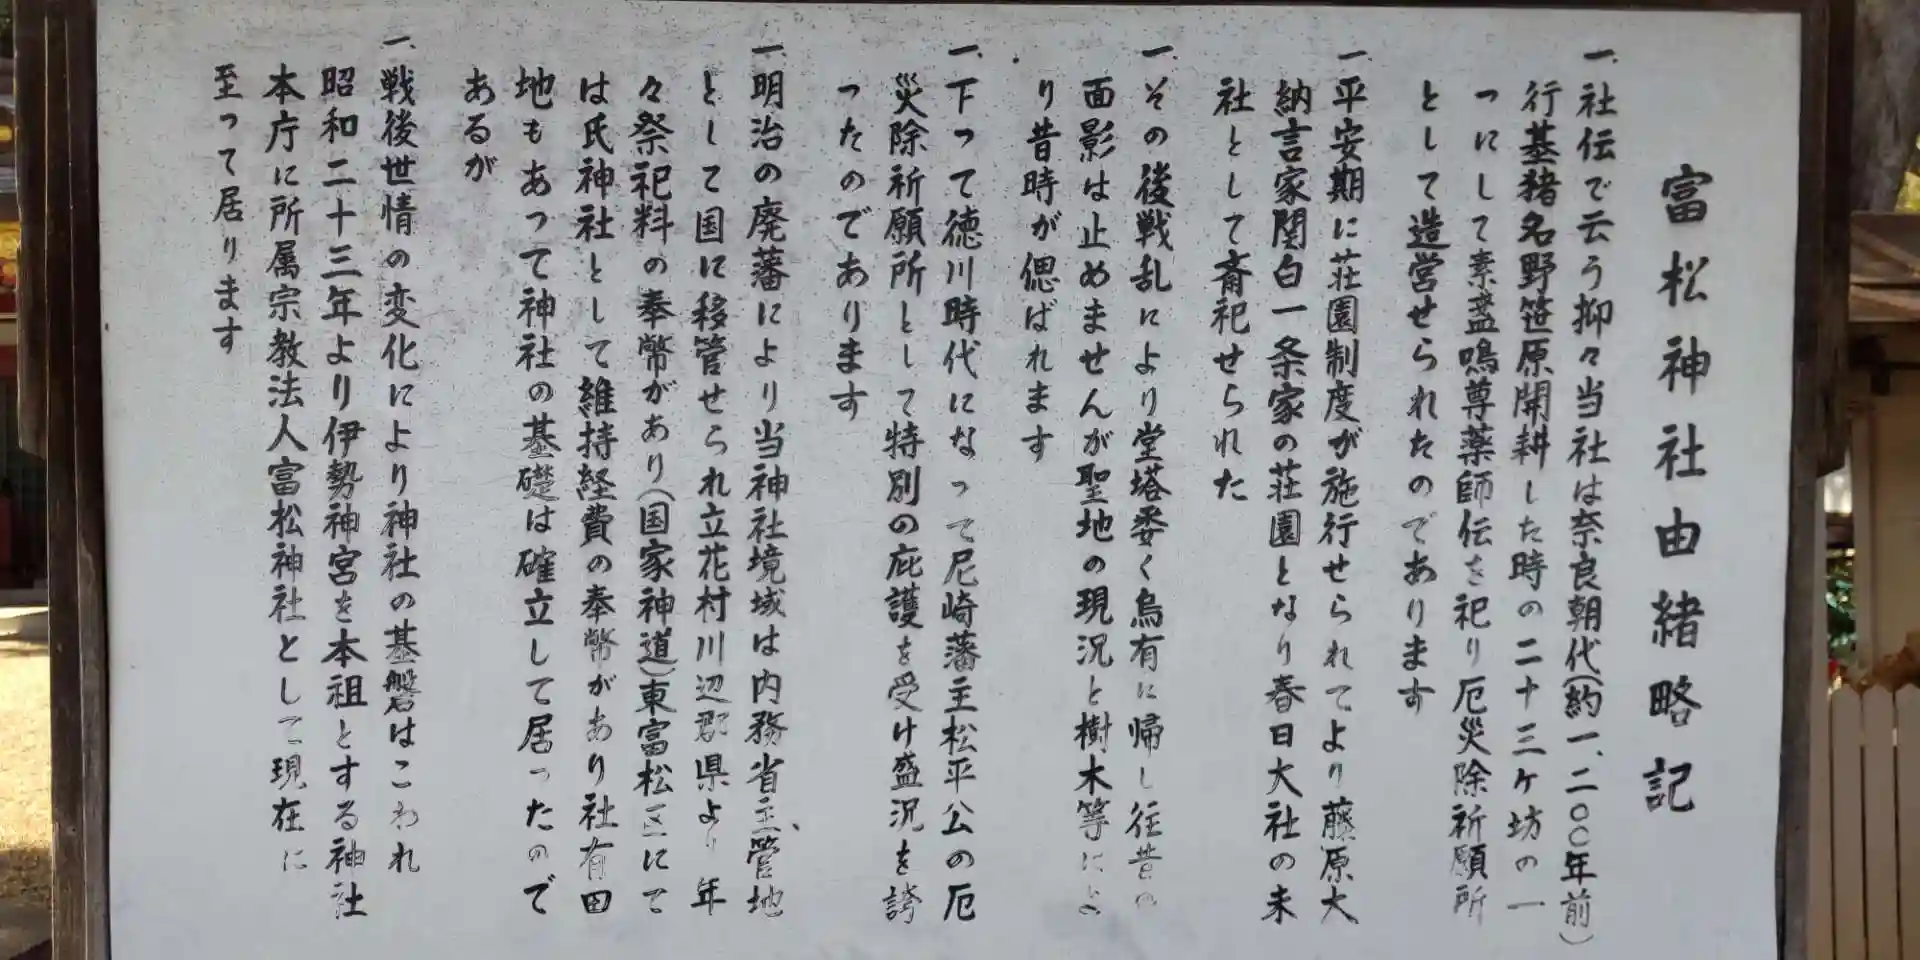 富松神社由緒略記
一、社伝で云う抑々当社は奈良朝代(約一、二〇〇年前)
行基猪名野笹原開耕した時の二十三ケ坊の一
つにして素盞鳴尊薬師伝を祀り厄災除祈願所
として造営せられたのであります
一、平安期に荘園制度が施行せられてより藤原大
納言家関白一条家の荘園となり春日大社の末
社として斎祀せられた
一、その後戦乱により堂塔委く烏有に帰し往昔の
面影は止めませんが聖地の現況と樹木等によ
り昔時が偲ばれます
一、下つて徳川時代になって尼崎藩主松平公の厄
災除祈願所として特別の庇護を受け盛況を誇
ったのであります
一、明治の廃藩により当神社境域は内務省主管地
として国に移管せられ立花村川辺郡県より年
々祭祀料の奉幣があり(国家神道)東富松区にて
は氏神社として維持経費の奉幣があり社有田
地もあつて神社の基礎は確立して居ったので
あるが
一、戦後世情の変化により神社の基盤はこわれ
昭和二十三年より伊勢神宮を本祖とする神社
本庁に所属宗教法人富松神社として現在に
至って居ります